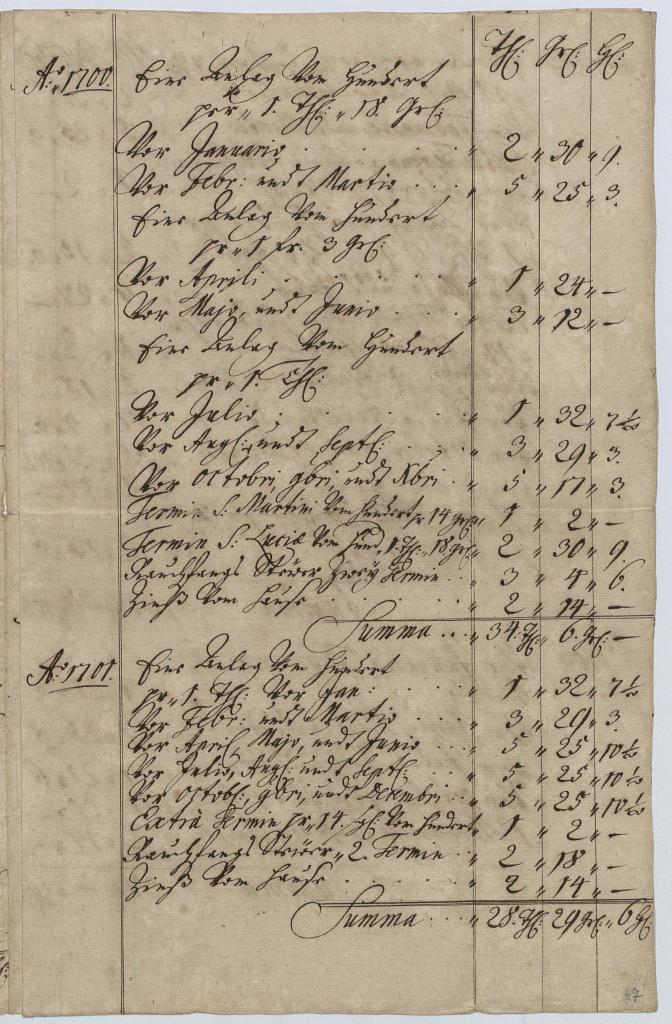 Thl: Grl: Hl:
Ao: 1700. Eine Anlag Vom Hundert
per 1. Thl: 18. Grl:
Vor Januario . . . . . " 2 " 30 " 9.
Vor Febr: undt Martio . . . . " 5 " 25 " 3.
Eine Anlag Vom Hundert
pr " 1 fr. 3 Grl:
Vor Aprili . . . . . " 1 " 24 " —
Vor Majo, undt Junio . . . . " 3 " 12 " —
Eine Anlag Vom Hundert
pr " 1. Thl:
Vor Julio . . . . . " 1 " 32 " 7 1/2
Vor Augl: undt Septl: . . . " 3 " 29 " 3.
Vor Octobri, 9bri, undt Xbri . . " 5 " 17 " 3.
Termin S: Martini Vom Hundert pr 14 grl " 1 " 2 " —
Termin S: Luciæ Vom Hund. 1. Thl: 18 grl " 2 " 30 " 9.
Rauchfangs Steüer Zweÿ Termin . . " 3 " 4 " 6.
Zinß Vom Hause . . . . . " 2 " 14 " —
Summa . . . " 34. Thl: 6. Grl: —
Ao: 1701. Eine Anlag Vom Hundert
pr " 1. Thl: Vor Jan: . . . " 1 " 32 " 7 1/2
Vor Febr: undt Martio . . . " 3 " 29 " 3.
Vor April, Majo, undt Junio . . . " 5 " 25 " 10 1/2
Vor Julio, Augl: undt Septl: . . " 5 " 25 " 10 1/2
Vor Octobl:, 9bri, undt Decembri . . " 5 " 25 " 10 1/2
Extra Termin pr " 14 Vom Hundert " 1 " 2 " —
Rauchfangs Steüer " 2. Termin . . " 2 " 18 " —
Zinß Vom Hause . . . . . " 2 " 14 " —
Summa . . . " 28. Thl: 29 Grl: " 6 Hl: